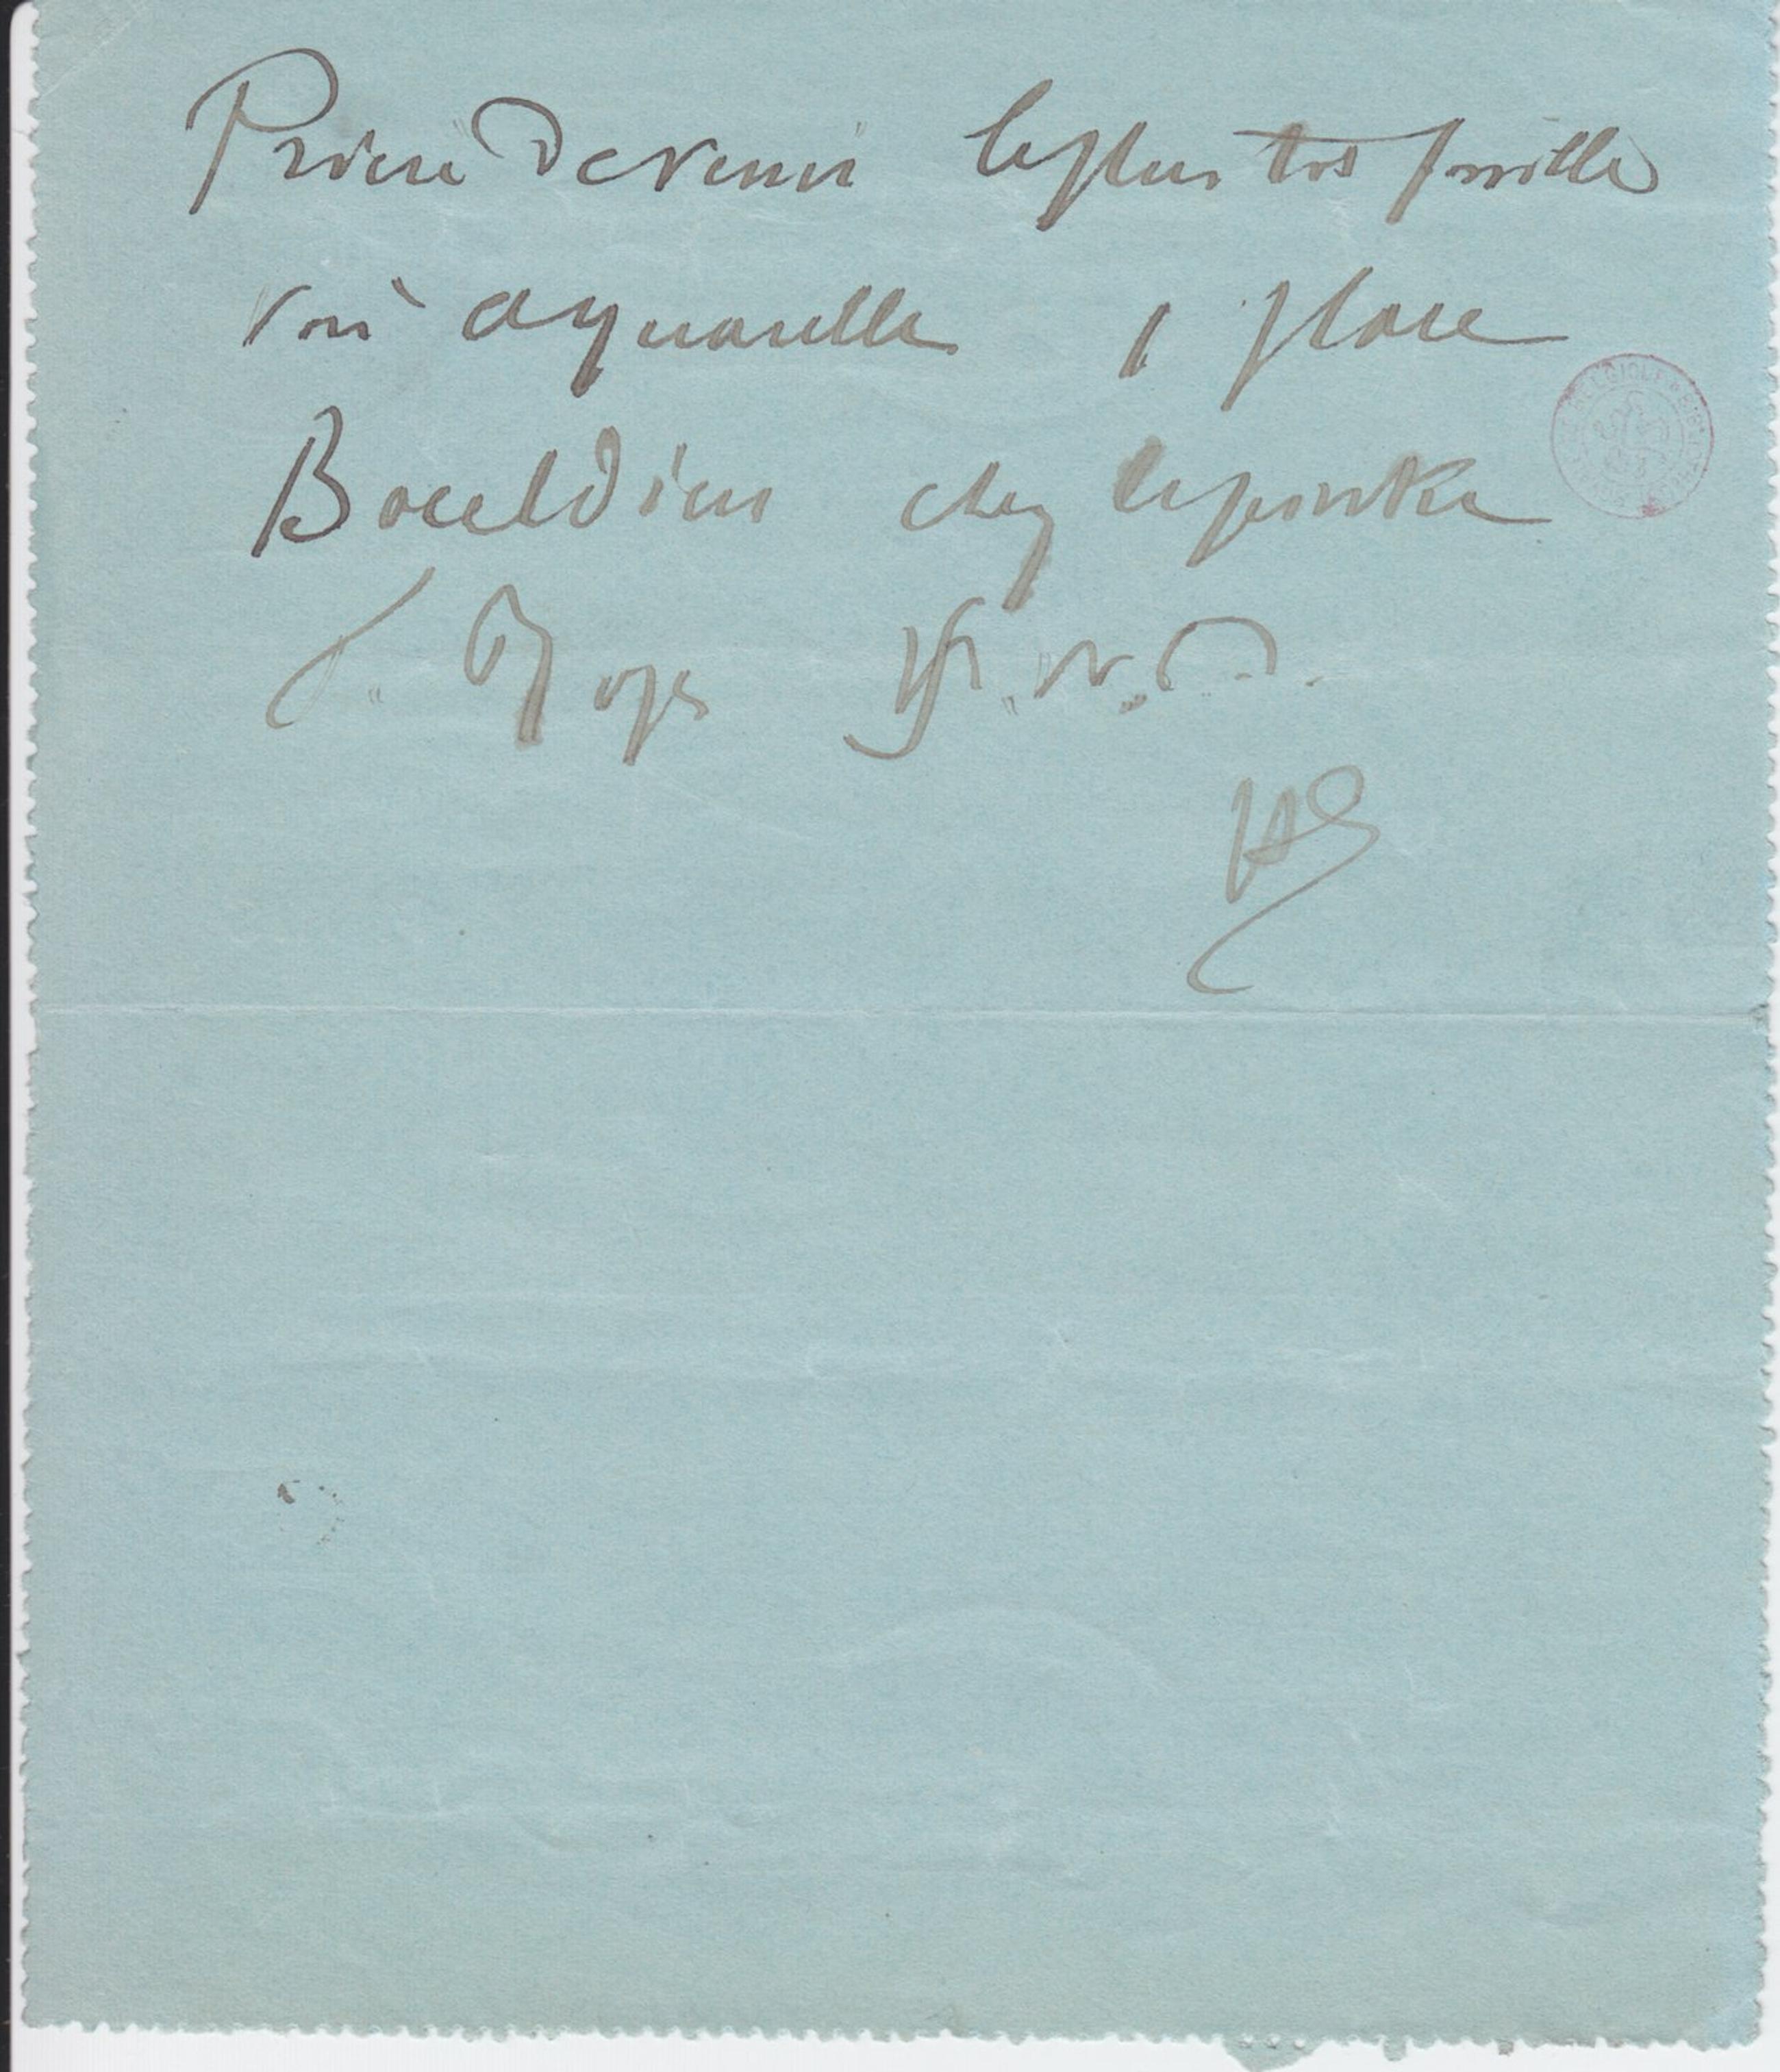 Prière de venir le plus tot possible
voir aquarelle 1 place
Boieldieu chez le peintre
F. Rops